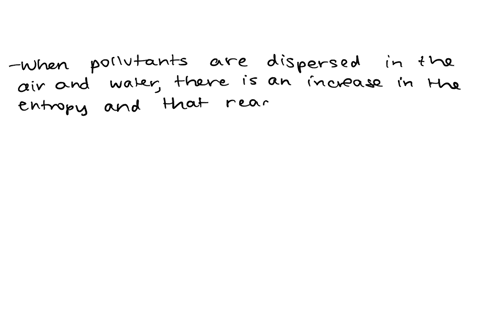 -When pollutants are dispersed in the
air and water, there is an increase in the
entropy and that reac